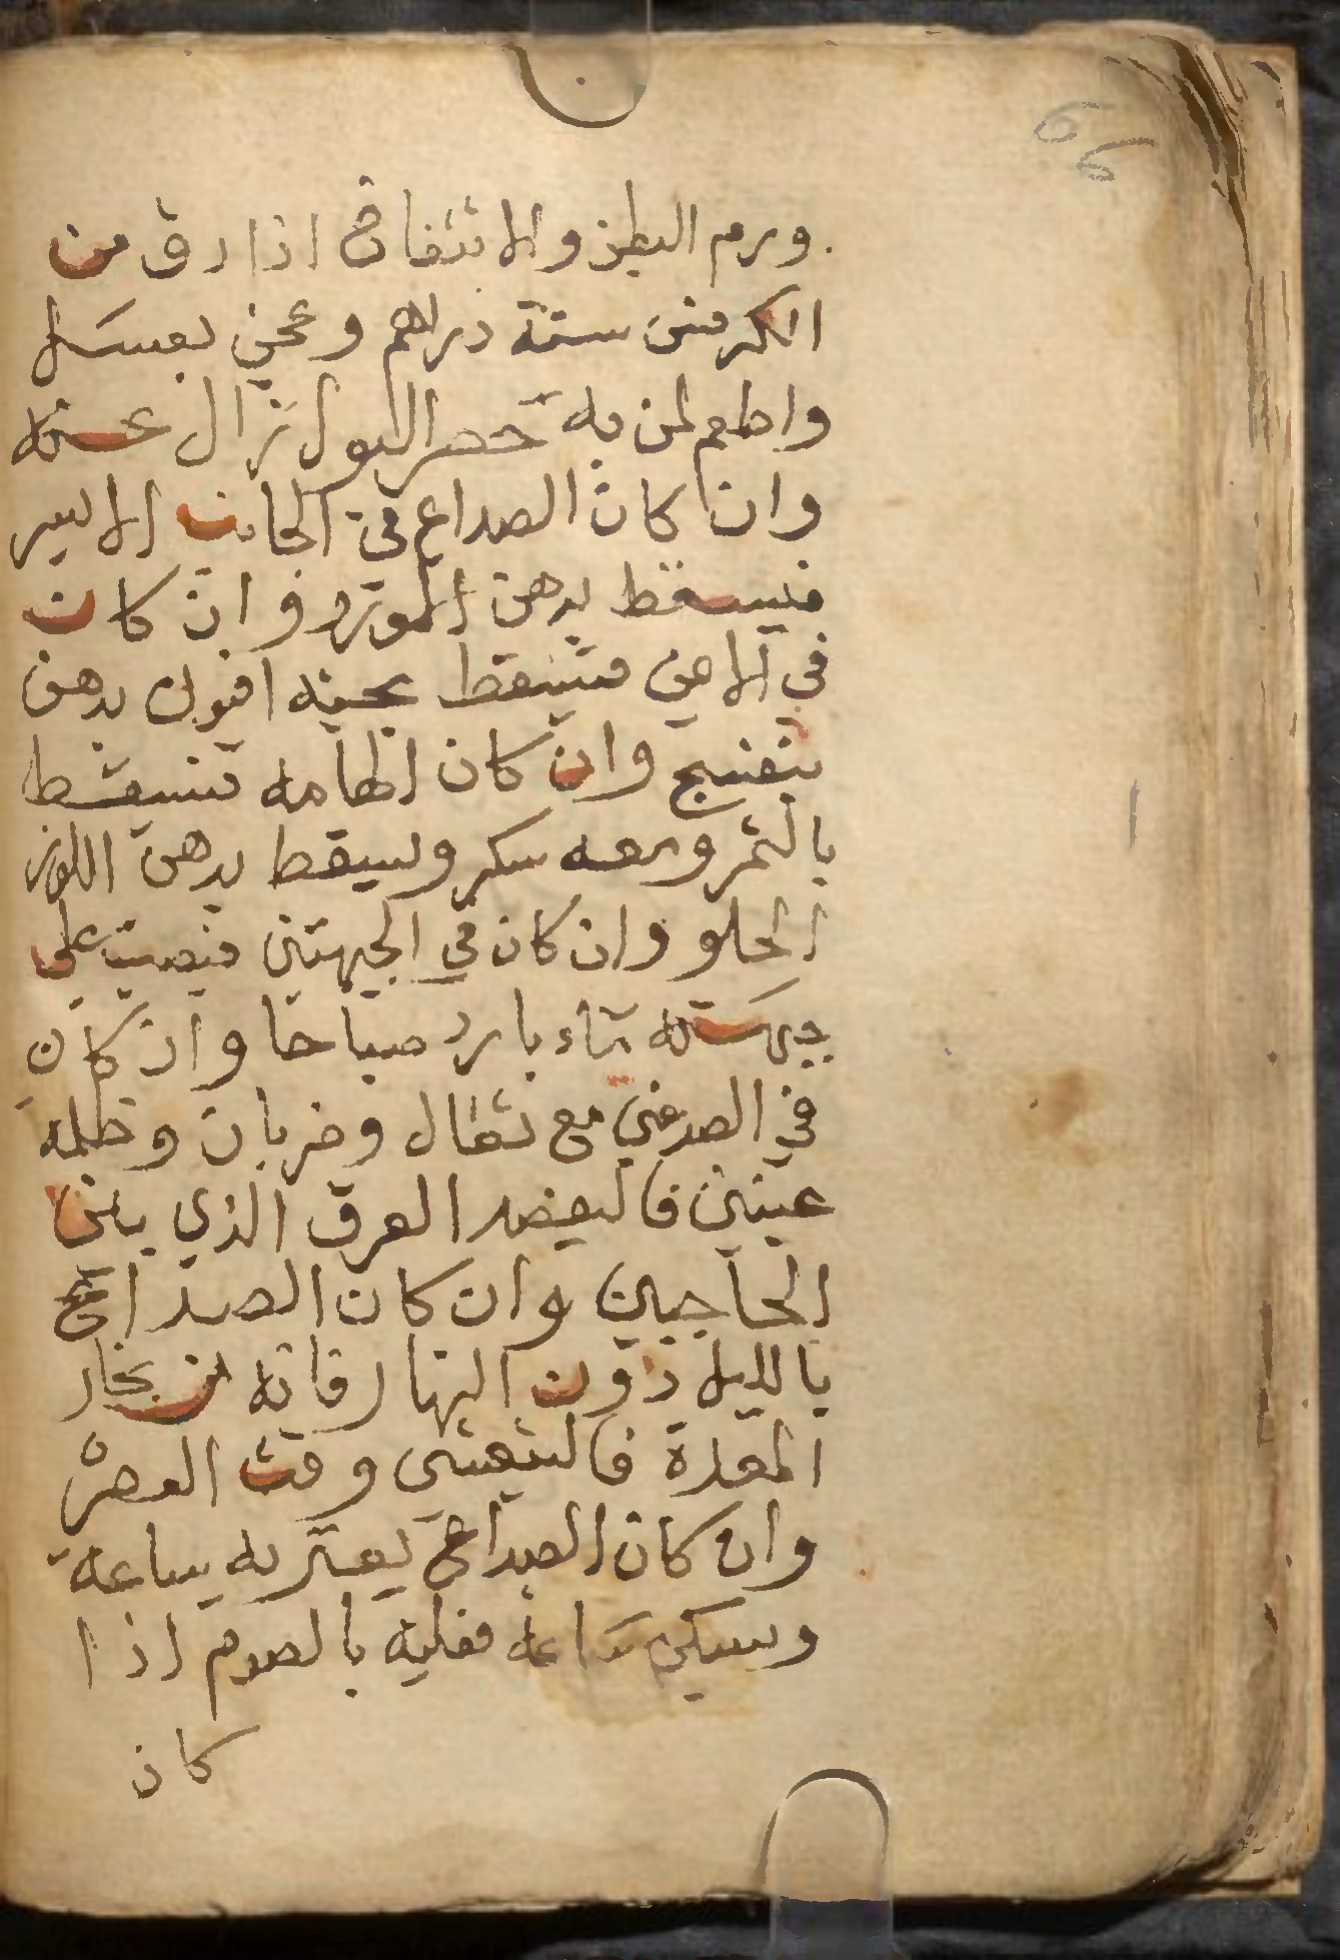 وبرم البطن والانتفاخ اذا دق من
الكرفس ستة دراهم وعجن بعسل
واطعم لمن به حصر البول نزال عنه
وان كان الصداع في الجانب الايسر
فيسقط بدهن الورد وان كان
في الايمن فتيسقط بحبة افيون بدهن
بنفسج وان كان الهامه فتيسقط
بالتمر ومعه سكر وليسقط بدهن اللوز
الحلو وان كان في الجبهتين فيصب على
جبهته ماء بارد صباحا وان كان
في الصدغين مع ثقال وضربان وظلمه
عينين فاليفصد العرق الذي بين
الحاجبين وان كان الصداع
بالليل دون النهار فانه من بخار
المعدة فاليتعشى وقت العصر
وان كان الصداع يعتريه ساعة
ويسكن ساعة فعليه بالصوم اذا
كان